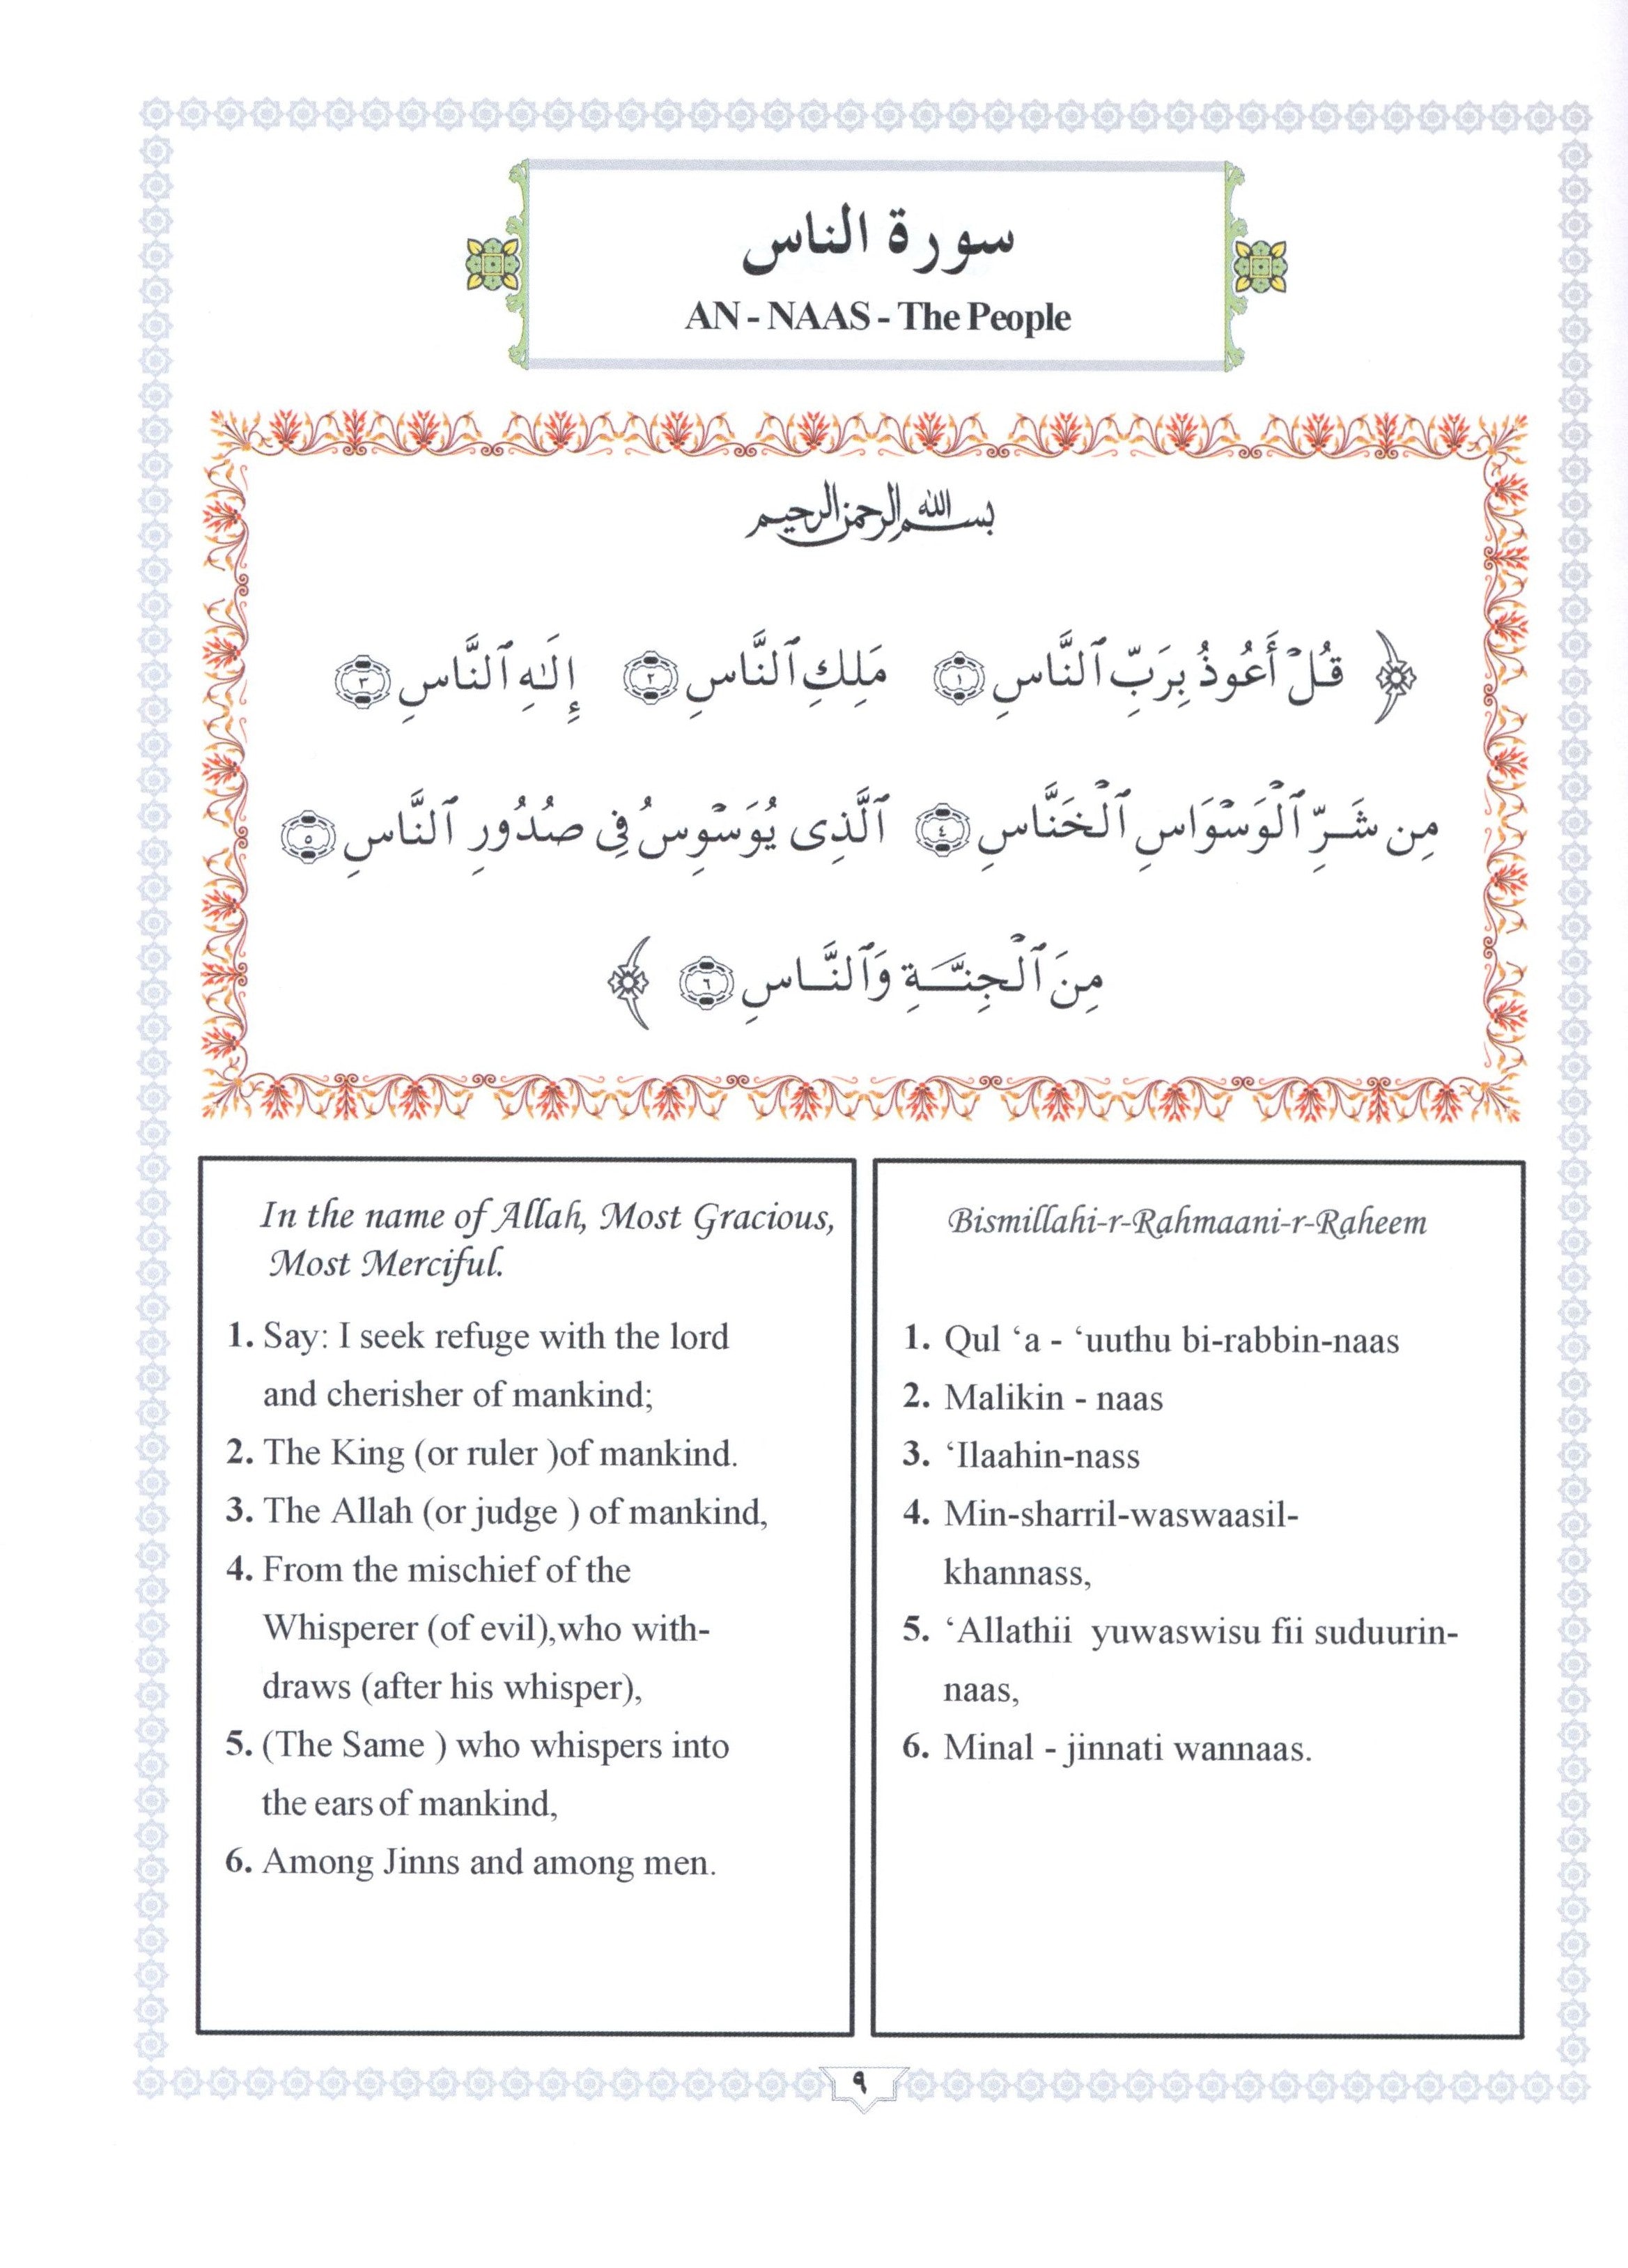 سورة الناس
AN - NAAS - The People
بسم الله الرحمن الرحيم
﴿ قُلْ أَعُوذُ بِرَبِّ ٱلنَّاسِ ١ مَلِكِ ٱلنَّاسِ ٢ إِلَٰهِ ٱلنَّاسِ ٣
مِن شَرِّ ٱلْوَسْوَاسِ ٱلْخَنَّاسِ ٤ ٱلَّذِى يُوَسْوِسُ فِى صُدُورِ ٱلنَّاسِ ٥
مِنَ ٱلْجِنَّةِ وَٱلنَّاسِ ٦ ﴾
In the name of Allah, Most Gracious,
Most Merciful.
1. Say: I seek refuge with the lord
and cherisher of mankind;
2. The King (or ruler )of mankind.
3. The Allah (or judge ) of mankind,
4. From the mischief of the
Whisperer (of evil),who with-
draws (after his whisper),
5. (The Same ) who whispers into
the ears of mankind,
6. Among Jinns and among men.
Bismillahi-r-Rahmaani-r-Raheem
1. Qul ‘a - ‘uuthu bi-rabbin-naas
2. Malikin - naas
3. ‘Ilaahin-nass
4. Min-sharril-waswaasil-
khannass,
5. ‘Allathii yuwaswisu fii suduurin-
naas,
6. Minal - jinnati wannaas.
٩